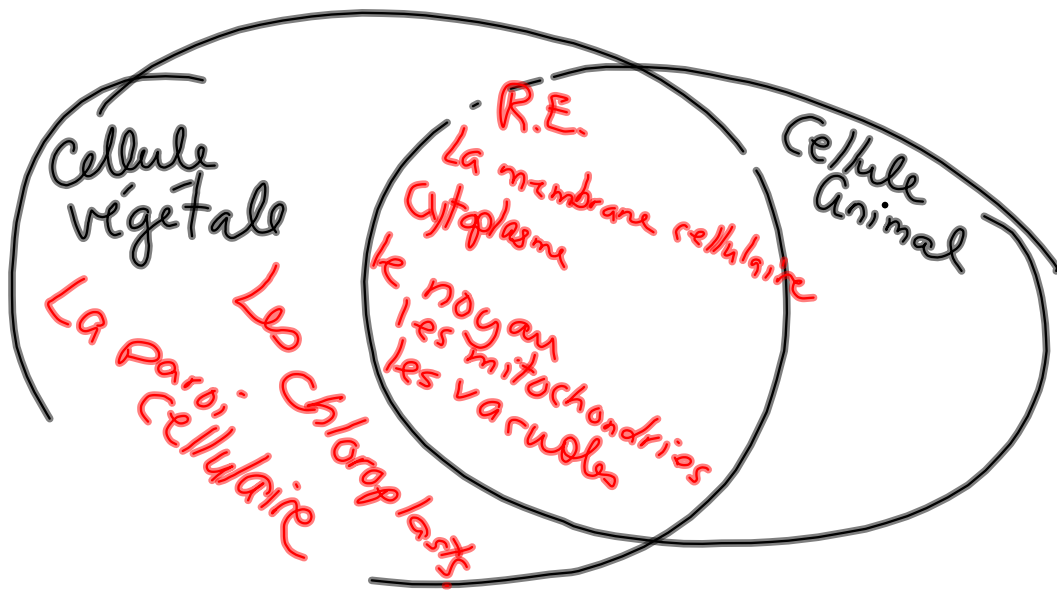 Cellule
végétale
La paroi
cellulaire
Les chloroplasts
R.E.
La membrane cellulaire
Cytoplasme
Le noyau
les mitochondries
les vacuoles
Cellule
Animal